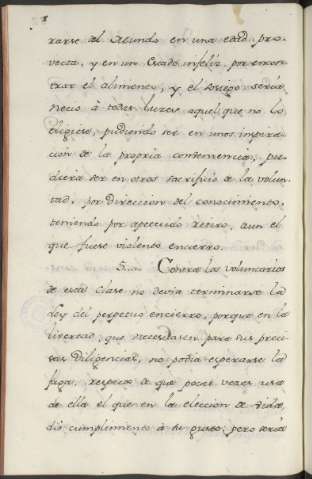 rarse del Mundo en una edad pro-
vecta, y en un Estado infeliz, por encon-
trar el alimento, y el sosiego seria
necio á todas luces aquel que no lo
eligiese, pudiendo ser en unos inspira-
cion de la propria conveniencia, pu-
diera ser en otros sacrificio de la volun-
tad, por direccion del conocimiento,
teniendo por apetecido retiro, aun el
que fuese violento encierro.
5.... Contra los voluntarios
de esta clase no devia terminarse la
Ley del perpetuo encierro, porque en la
livertad, que necesitasen para sus preci-
sas diligencias, no podia esperarse la
fuga, respecto de que pocas veces usa
de ella el que en la eleccion de vida,
dió cumplimiento á su gusto; pero seria